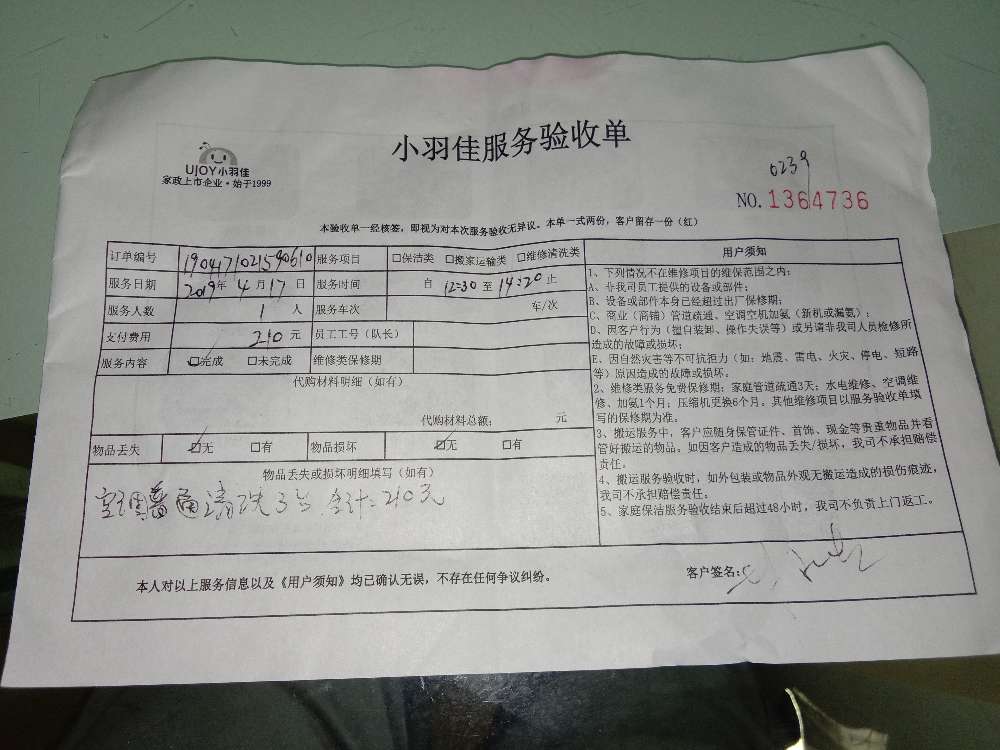 小羽佳服务验收单
UJOY小羽佳
家政上市企业·始于1999
0239
NO. 1364736
本验收单一经核签，即视为对本次服务验收无异议。本单一式两份，客户留存一份（红）
订单编号 190417102159061 0 服务项目 □保洁类 □搬家运输类 □维修清洗类
服务日期 2019年 4月 17日 服务时间 自 12:30 至 14:20 止
服务人数 1 人 服务车次 车/次
支付费用 210 元 员工工号（队长）
服务内容 ☑完成 □未完成 维修类保修期
代购材料明细（如有）
代购材料总额： 元
物品丢失 ☑无 □有 物品损坏 ☑无 □有
物品丢失或损坏明细填写（如有）
空调普通清洗3台 合计=210元
用户须知
1、下列情况不在维修项目的维保范围之内：
A、非我司员工提供的设备或部件；
B、设备或部件本身已经超过出厂保修期；
C、商业（商铺）管道疏通、空调空机加氨（新机或漏氨）；
D、因客户行为（擅自装卸、操作失误等）或另请非我司人员检修所
造成的故障或损坏；
E、因自然灾害等不可抗拒力（如：地震、雷电、火灾、停电、短路
等）原因造成的故障或损坏。
2、维修类服务免费保修期：家庭管道疏通3天；水电维修、空调维
修、加氨1个月；压缩机更换6个月。其他维修项目以服务验收单填
写的保修期为准。
3、搬运服务中，客户应随身保管证件、首饰、现金等贵重物品并看
管好搬运的物品。如因客户造成的物品丢失/损坏，我司不承担赔偿
责任。
4、搬运服务验收时，如外包装或物品外观无搬运造成的损伤痕迹，
我司不承担赔偿责任。
5、家庭保洁服务验收结束后超过48小时，我司不负责上门返工。
本人对以上服务信息以及《用户须知》均已确认无误，不存在任何争议纠纷。
客户签名：